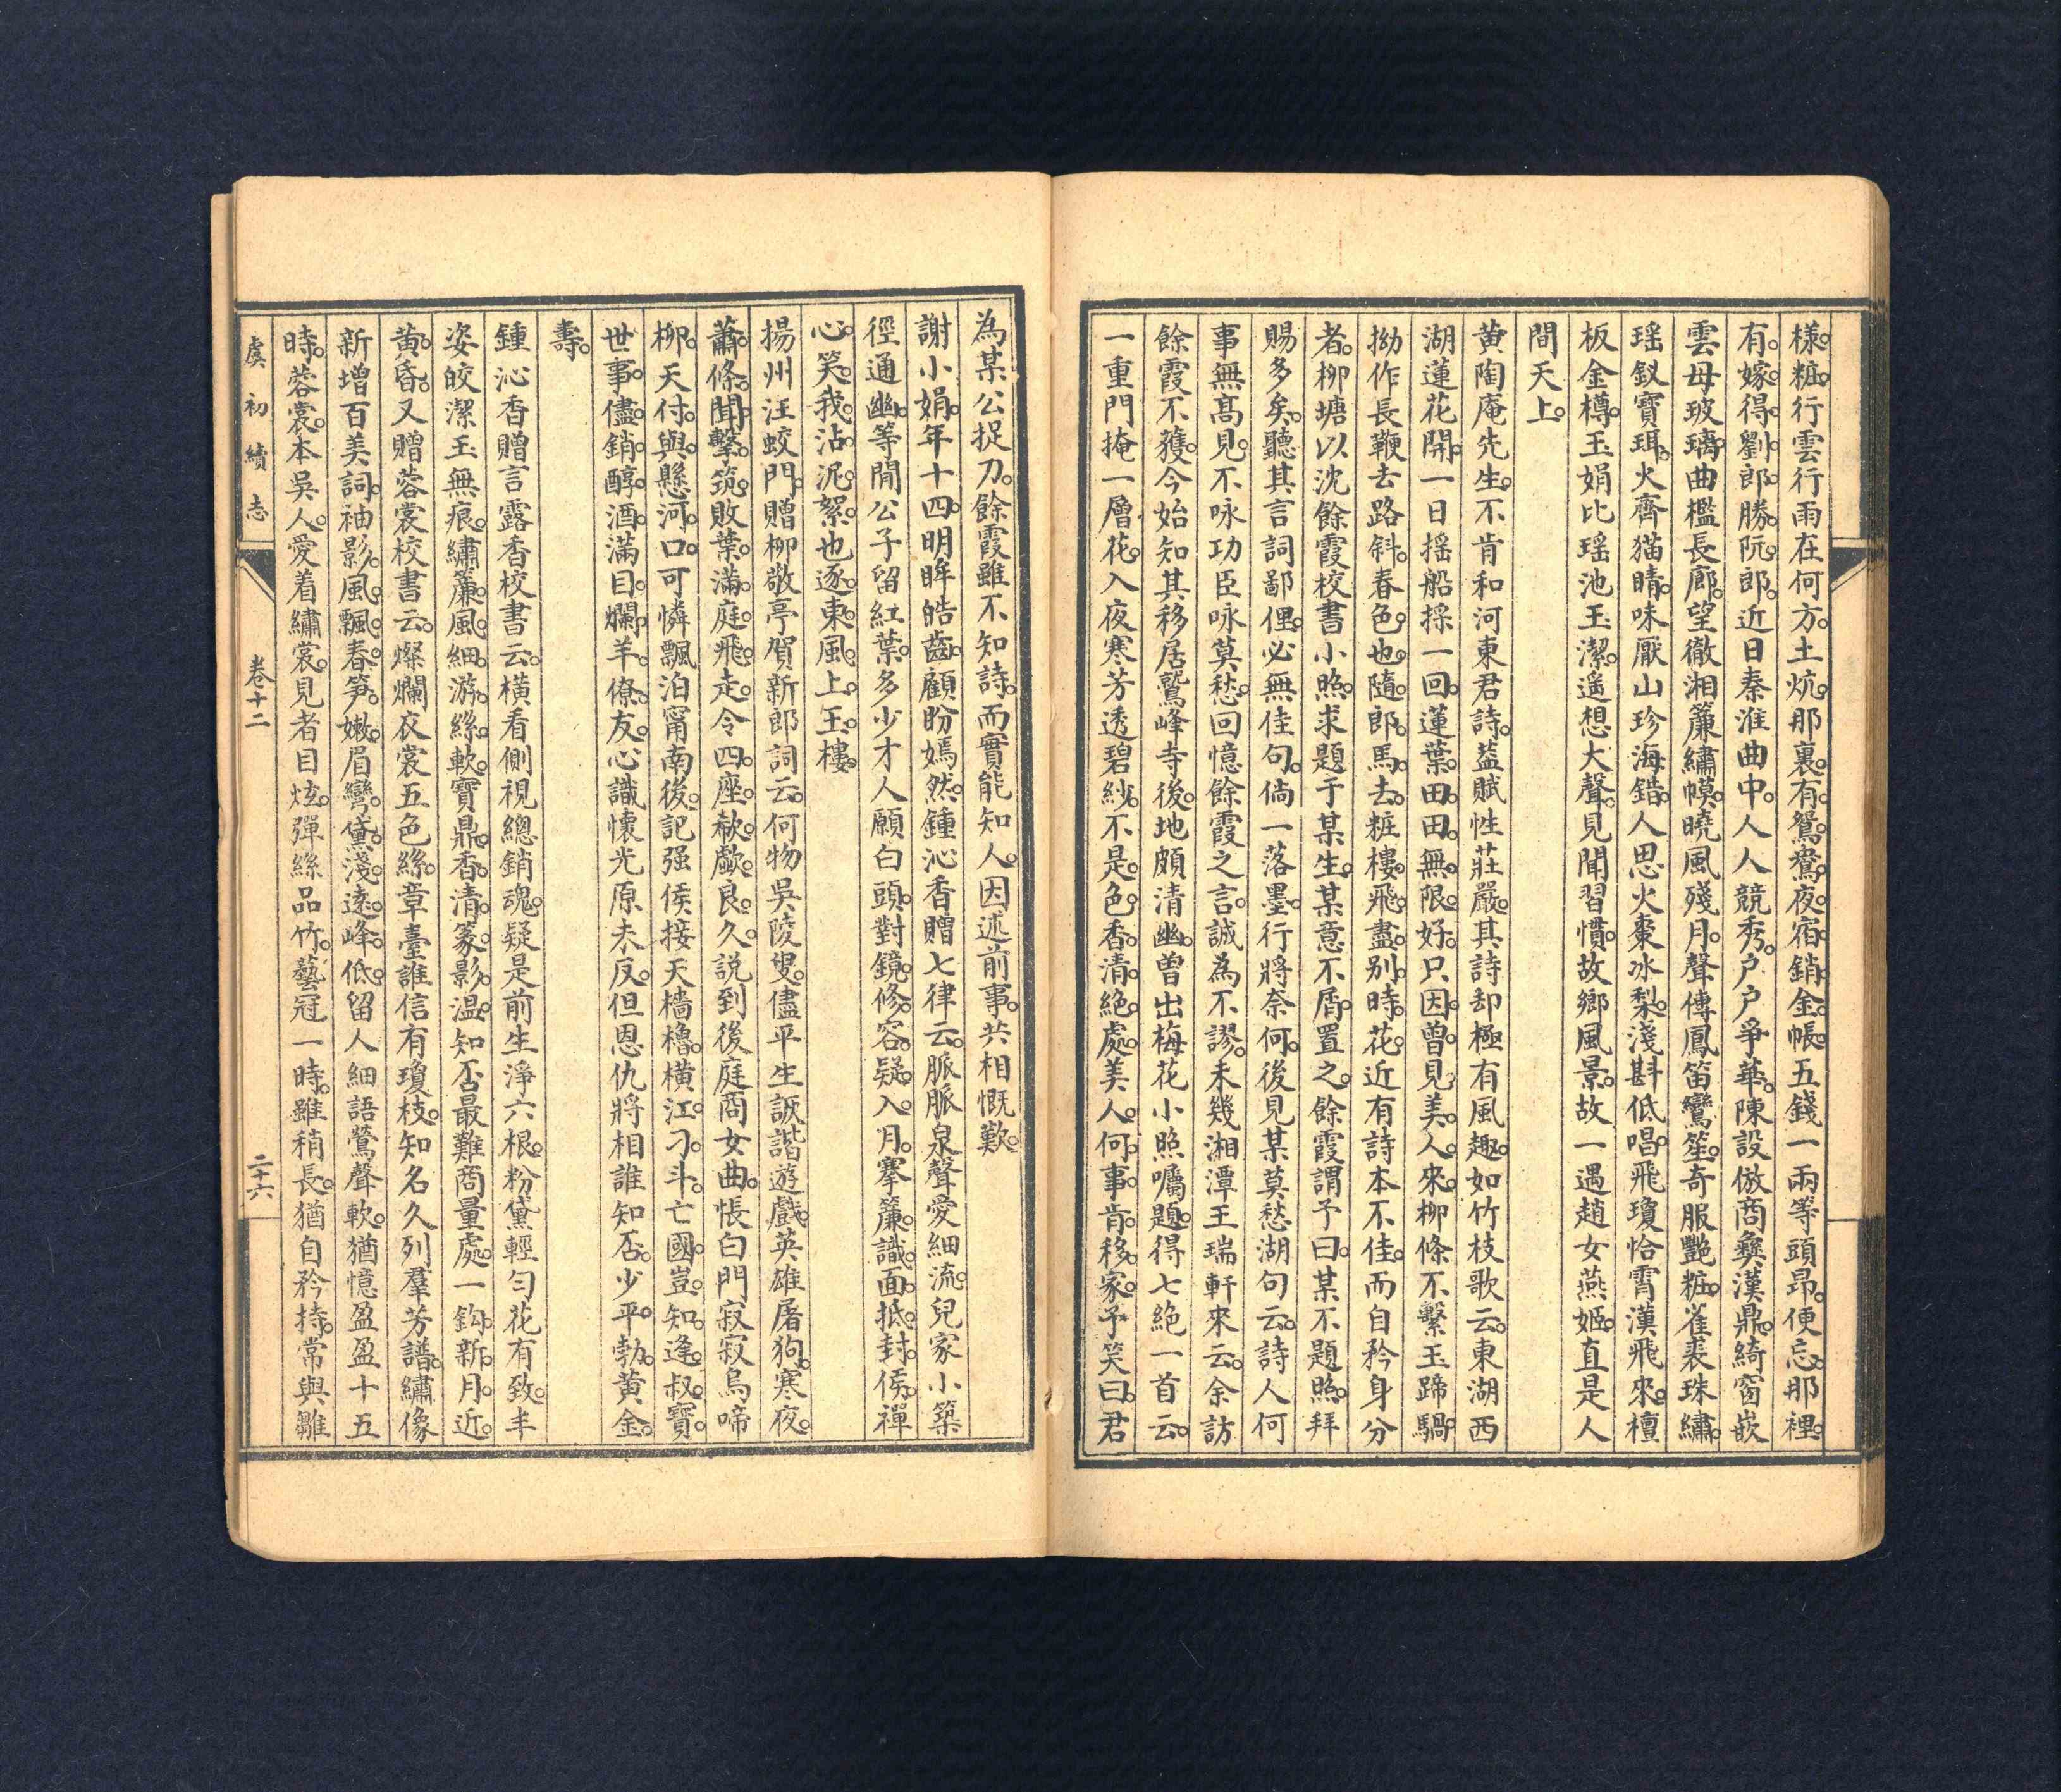 樣。粧。行雲行雨在何方。土炕。那裏。有。鴛。鴦。夜。宿。銷。金。帳。五錢一兩等頭昂。便忘。那裡。
有。嫁。得。劉。郎。勝。阮。郎。近日秦淮曲中。人人競秀。户户爭華。陳設倣商彝漢鼎。綺窗嵌
雲母玻璃。曲檻長廊。望徹湘簾繡幙。曉風殘月。聲傳鳳笛鸞笙。奇服艷粧。雀裘珠繡。
瑶釵寶珥。火齊猫睛。味厭山珍海錯。人思火棗冰梨。淺斟低唱。飛瓊恰霄漢飛來。檀
板金樽。玉娟比瑶池玉潔。遥想大聲。見聞習慣。故鄉風景。故一遇趙女燕姬。直是人
間天上。
黄陶庵先生。不肯和河東君詩。葢賦性莊嚴。其詩却極有風趣。如竹枝歌云。東湖西
湖蓮花開。一日摇船採一回。蓮葉。田。田。無。限。好。只因。曾。見。美。人。來。柳條不繫玉蹄騧。
拗作長鞭去路斜。春色。也。隨。郎。馬。去。粧樓。飛。盡。別。時。花。近有詩本不佳。而自矜身分
者。柳塘以沈餘霞校書小照。求題于某生。某意不屑。置之。餘霞謂予曰。某不題照。拜
賜多矣。聽其言詞鄙俚。必無佳句。倘一落墨。行將奈何。後見某莫愁湖句云。詩人何
事無高見。不咏功臣咏莫愁。回憶餘霞之言。誠為不謬。未幾湘潭王瑞軒來云。余訪
餘霞不獲。今始知其移居鷲峰寺後。地頗清幽。曾出梅花小照囑題。得七絶一首云。
一重門掩一層花。入夜寒芳透碧紗。不是。色。香。清。絶。處。美人。何。事。肯。移。家。予笑曰。君
為某公捉刀。餘霞雖不知詩。而實能知人。因述前事。共相慨歎。
謝小娟。年十四。明眸皓齒。顧盼嫣然。鍾沁香贈七律云。脈脈泉聲愛細流。兒家小築
徑通幽。等閒公子留紅葉。多少才人願白頭。對鏡。修。容。疑。入。月。搴簾。識。面。抵。封。侯。禪
心。笑。我。沾。泥。絮。也。逐。東。風。上。玉。樓。
揚州汪蛟門。贈柳敬亭賀新郎詞云。何物吳陵叟。儘平生詼諧遊戲。英雄屠狗。寒夜。
蕭。條。聞。擊。筑。敗葉。滿。庭。飛。走。令。四。座。欷。歔。良。久。説到後庭商女曲。悵白門寂寂烏啼
柳。天付。與。懸。河。口。可憐飄泊甯南後。記强侯接天檣櫓。橫江。刁。斗。亡國。豈。知。逢。叔。寶。
世。事。儘。銷。醇。酒。滿。目。爛。羊。僚。友。心識懷光原未反。但恩仇將相誰知否。少平。勃。黄。金。
壽。
鍾沁香贈言露香校書云。橫看側視總銷魂。疑是前生淨六根。粉黛輕勻花有致。丰
姿皎潔玉無痕。繡簾。風。細。游。絲。軟。寶鼎。香。清。篆。影。温。知否最難商量處。一鈎。新。月。近。
黄。昏。又贈蓉裳校書云。燦爛衣裳五色絲。章臺誰信有瓊枝。知名久列羣芳譜。繡像
新增百美詞。袖影。風。飄。春。笋。嫩。眉彎。黛。淺。遠。峰。低。留人細語鶯聲軟。猶憶盈盈十五
時。蓉裳。本吳人。愛着繡裳。見者目炫。彈絲品竹。藝冠一時。雖稍長。猶自矜持。常與雛
虞初續志
卷十二
二十六